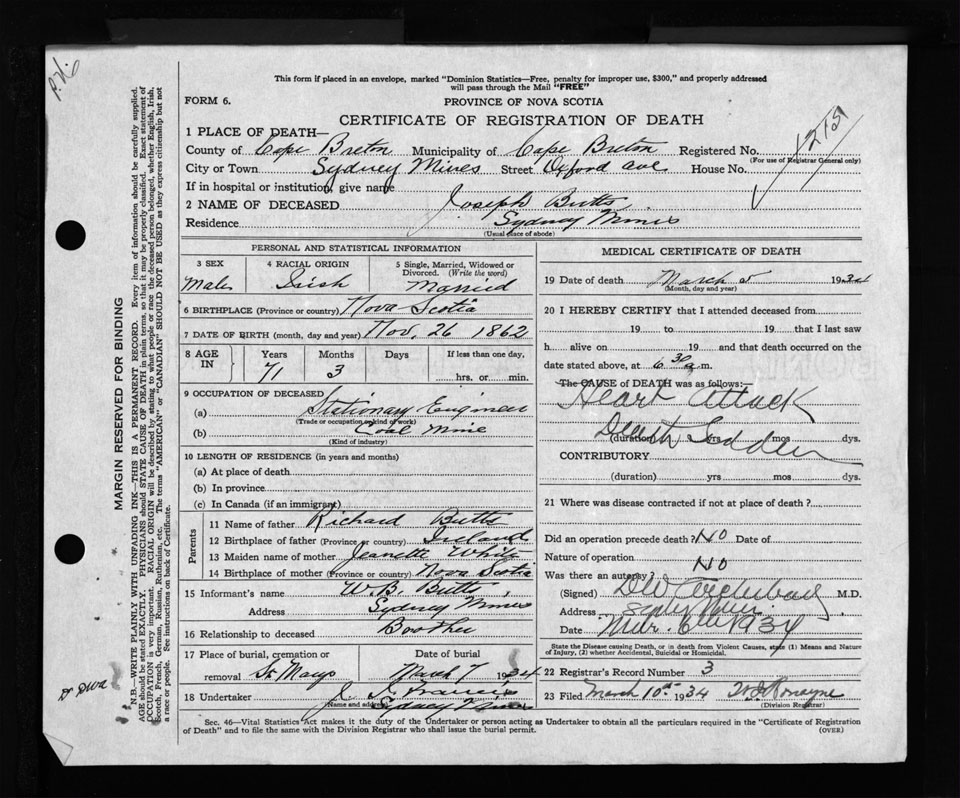 P.H.
This form if placed in an envelope, marked "Dominion Statistics—Free, penalty for improper use, $300," and properly addressed
will pass through the Mail "FREE"
FORM 6.
PROVINCE OF NOVA SCOTIA
CERTIFICATE OF REGISTRATION OF DEATH
1 PLACE OF DEATH—
County of Cape Breton Municipality of Cape Breton Registered No.
(For use of Registrar General only)
City or Town Sydney Mines Street Oxford ave House No.
If in hospital or institution, give name
2 NAME OF DECEASED Joseph Butts
Residence Sydney Mines
(Usual place of abode)
PERSONAL AND STATISTICAL INFORMATION
3 SEX 4 RACIAL ORIGIN 5 Single, Married, Widowed or
Divorced. (Write the word)
Male Irish Married
6 BIRTHPLACE (Province or country) Nova Scotia
7 DATE OF BIRTH (month, day and year) Nov, 26 1862
8 AGE IN Years Months Days If less than one day,
71 3 hrs. or min.
9 OCCUPATION OF DECEASED
(a) Stationary Engineer
(Trade or occupation or kind of work)
(b) Coal Mine
(Kind of industry)
10 LENGTH OF RESIDENCE (in years and months)
(a) At place of death
(b) In province
(c) In Canada (if an immigrant)
Parents
11 Name of father Richard Butts
12 Birthplace of father (Province or country) Ireland
13 Maiden name of mother Jeanette White
14 Birthplace of mother (Province or country) Nova Scotia
15 Informant's name W.B. Butts,
Address Sydney Mines
16 Relationship to deceased Brother
17 Place of burial, cremation or Date of burial
removal St Marys March 7 1934
18 Undertaker J. Francis
(Name and address) Sydney Mines
MEDICAL CERTIFICATE OF DEATH
19 Date of death March 5 1934
(Month, day and year)
20 I HEREBY CERTIFY that I attended deceased from
19 to 19 that I last saw
h alive on 19 and that death occurred on the
date stated above, at 6 30 a.m.
The CAUSE of DEATH was as follows:—
Heart Attack
Death Sudden
(duration) yrs mos dys.
CONTRIBUTORY
(duration) yrs mos dys.
21 Where was disease contracted if not at place of death?
Did an operation precede death? No Date of
Nature of operation
Was there an autopsy? No
(Signed) Archibald M.D.
Address Sydney Mines
Date Mar. 6th 1934
State the Disease causing Death, or in death from Violent Causes, state (1) Means and Nature
of Injury, (2) whether Accidental, Suicidal or Homicidal.
22 Registrar's Record Number 3
23 Filed March 10th 1934
(Division Registrar)
Sec. 46—Vital Statistics Act makes it the duty of the Undertaker or person acting as Undertaker to obtain all the particulars required in the "Certificate of Registration
of Death" and to file the same with the Division Registrar who shall issue the burial permit.
(OVER)
MARGIN RESERVED FOR BINDING
N.B.—WRITE PLAINLY WITH UNFADING INK—THIS IS A PERMANENT RECORD. Every item of information should be carefully supplied.
AGE should be stated EXACTLY. PHYSICIANS should STATE CAUSE OF DEATH in plain terms, so that it may be properly classified. Exact statement of
OCCUPATION is very important. RACIAL ORIGIN will be described by stating to what people or race the deceased person belonged, whether English, Irish,
Scotch, French, German, Russian, Ruthenian, etc. The terms "AMERICAN" or "CANADIAN" SHOULD NOT BE USED as they express citizenship but not
a race or people. See instructions on back of Certificate.